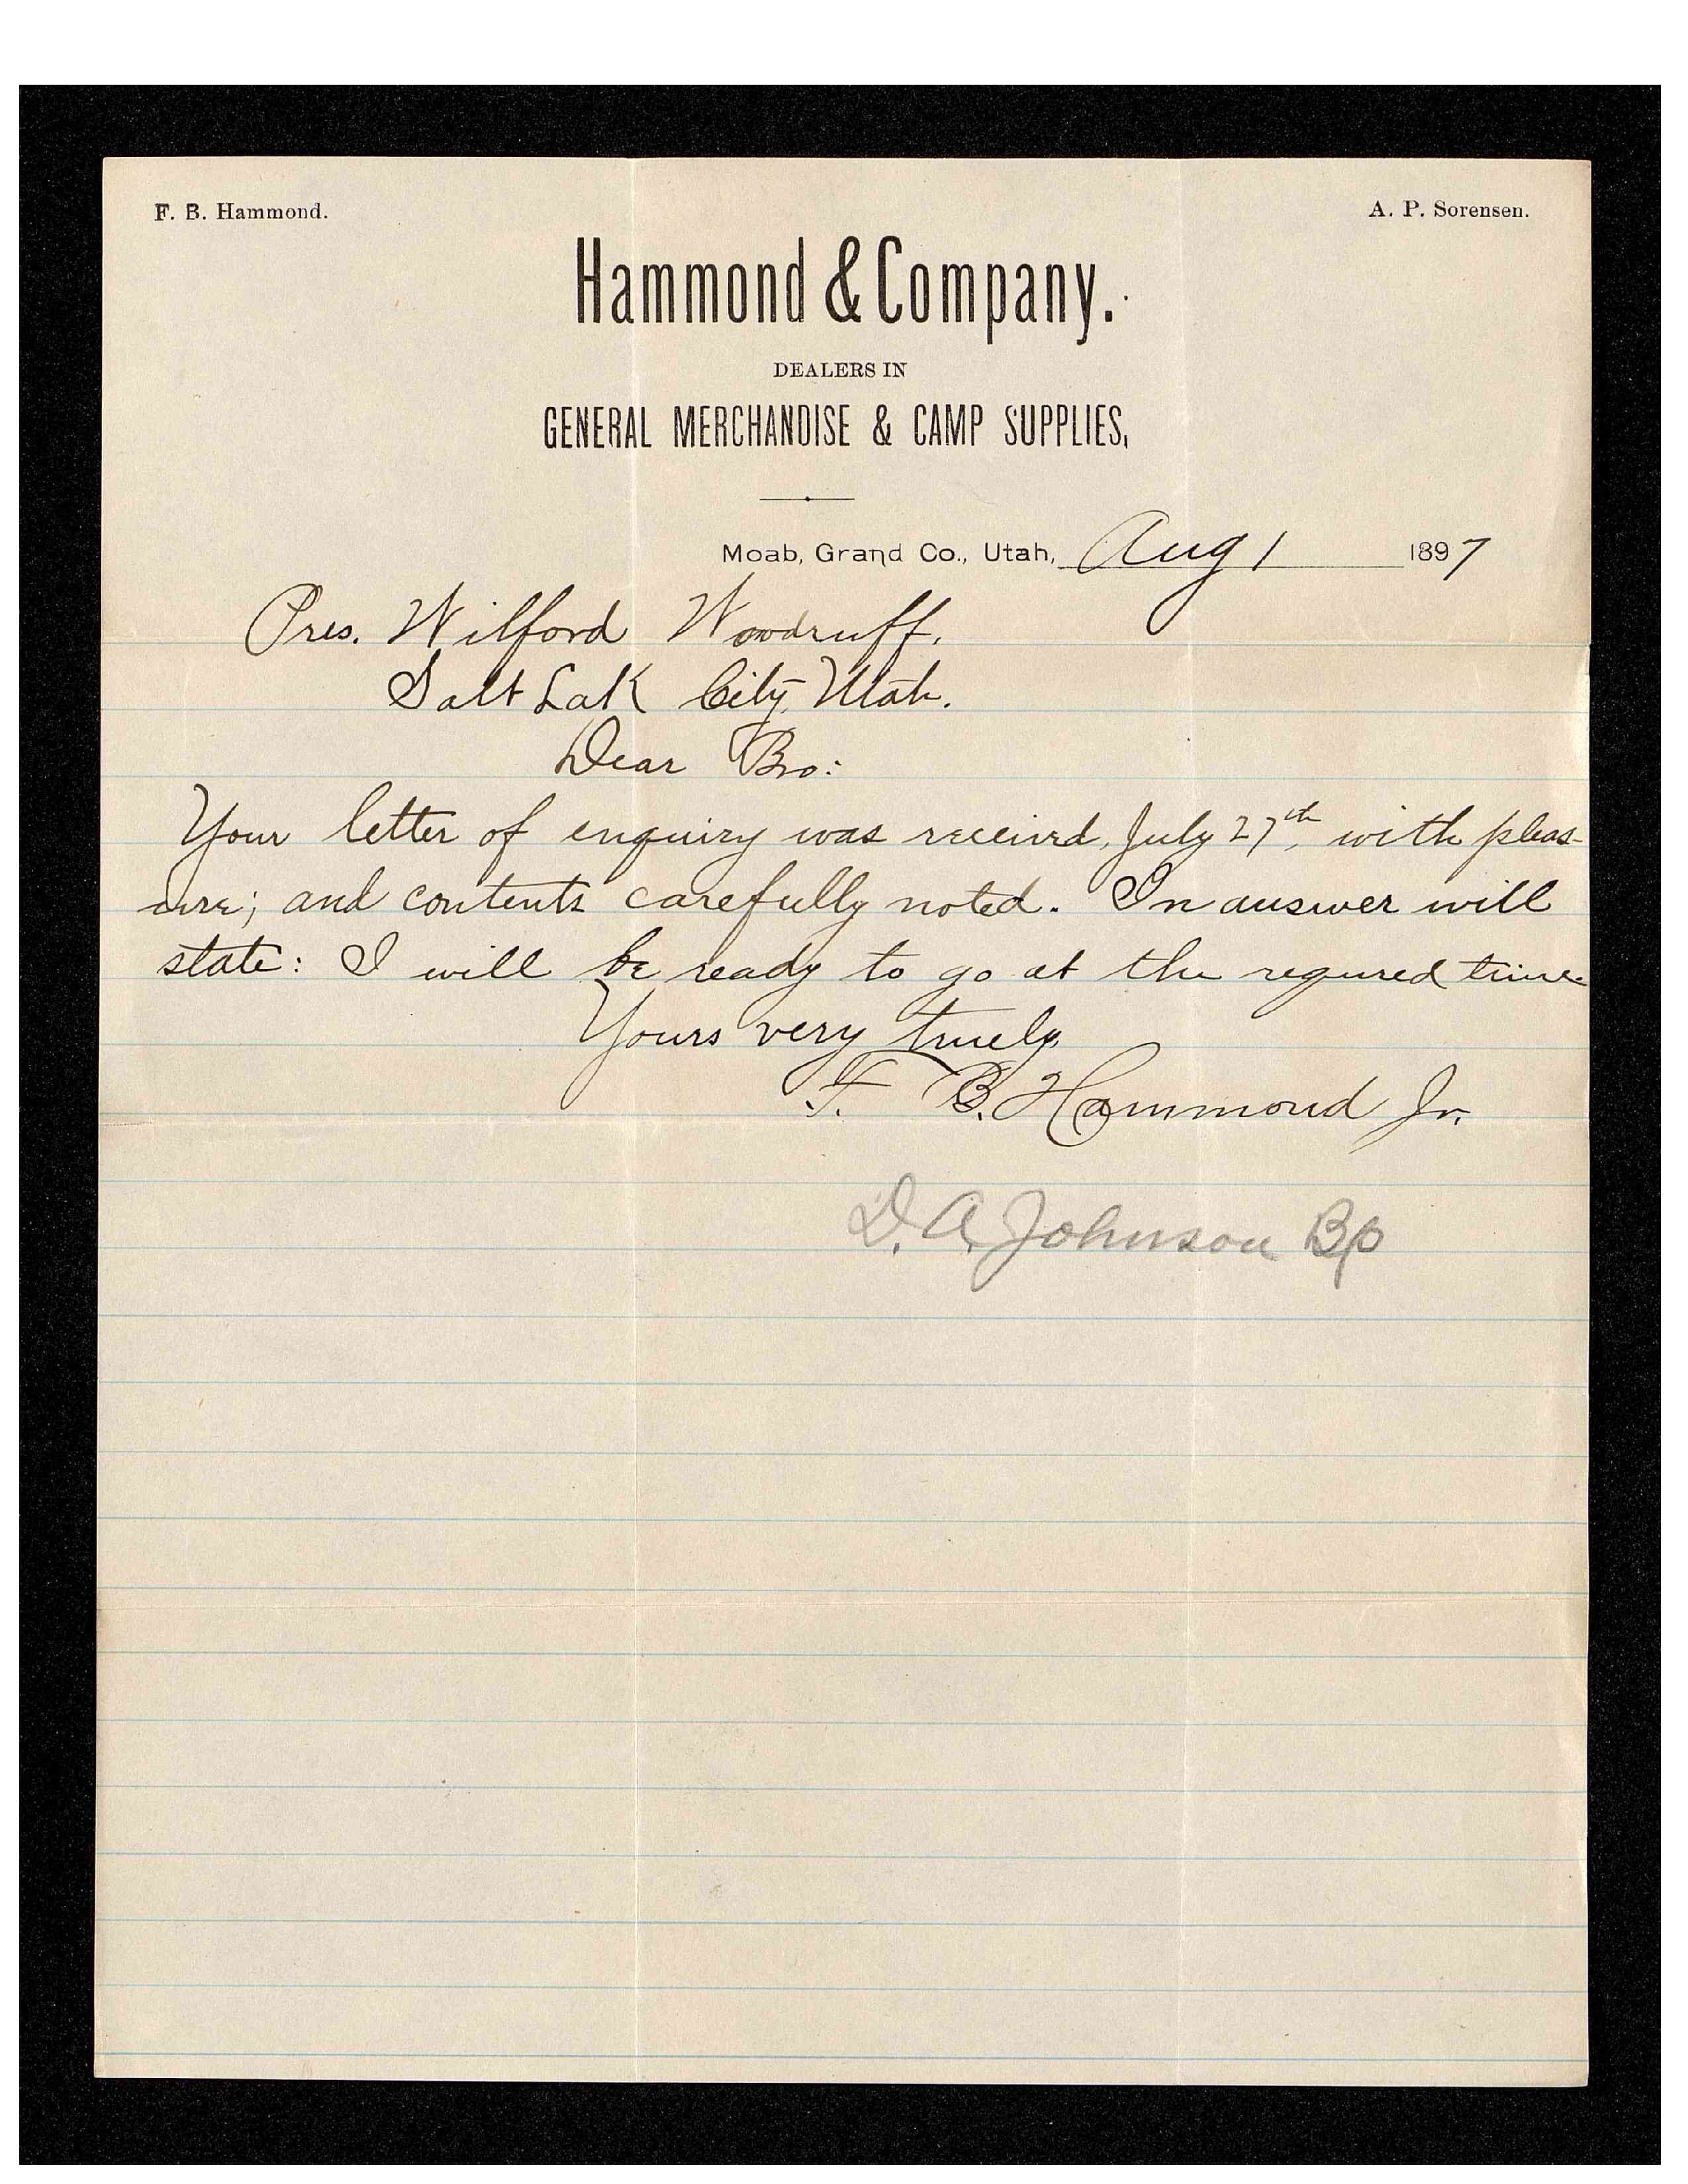 F. B. Hammond. A. P. Sorensen.
Hammond & Company.
DEALERS IN
GENERAL MERCHANDISE & CAMP SUPPLIES,
Moab, Grand Co., Utah, Aug 1 1897
Pres. Wilford Woodruff.
Salt Lak City, Utah.
Dear Bro:
Your letter of enquiry was received, July 27th, with pleas-
ure; and contents carefully noted. In answer will
state: I will be ready to go at the requred time.
Yours very truely
F. B. Hammond Jr.
D. A. Johnson Bp